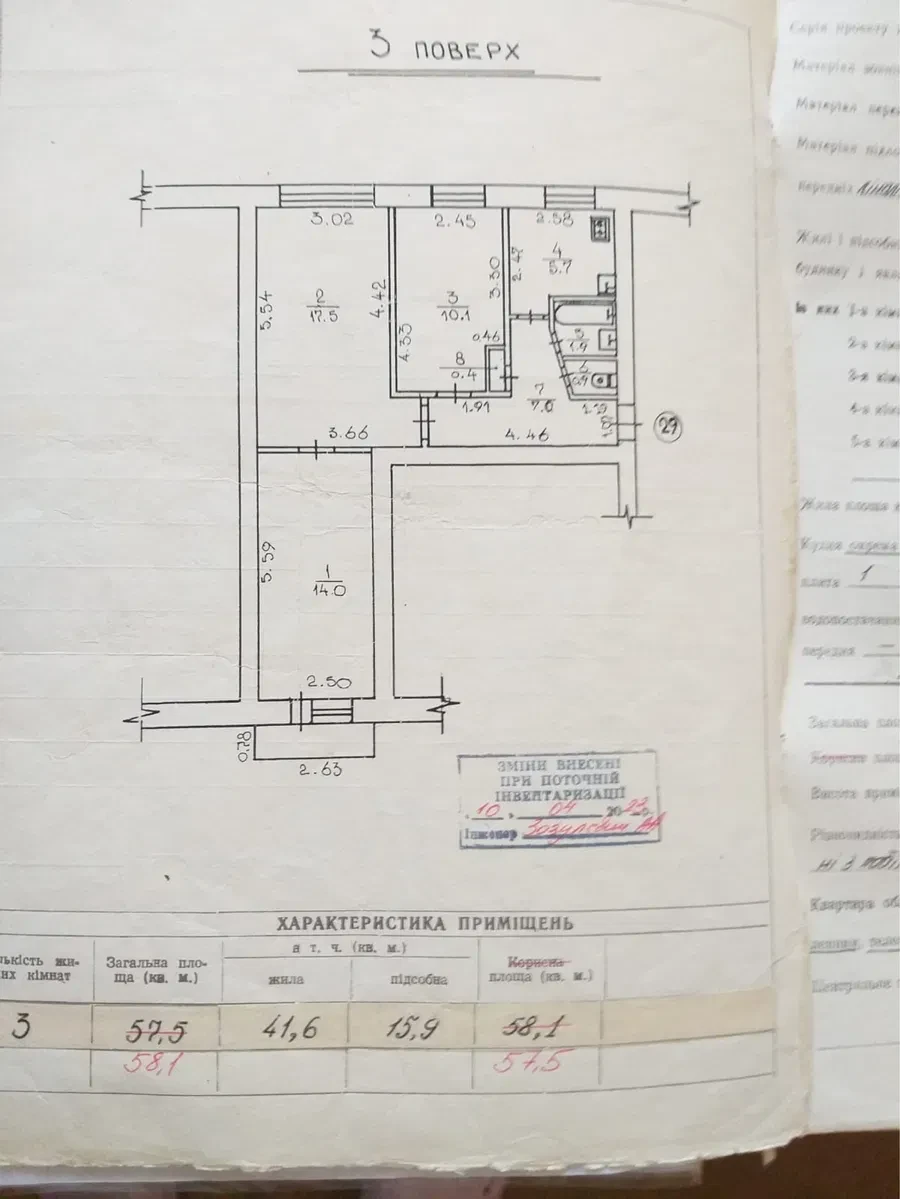 3 ПОВЕРХ
3.02
2.45
2.58
5.54
2
17.5
4.42
4.33
3
10.1
3.30
2.47
4
5.7
0.46
8
0.4
5
1.9
6
0.9
7
7.0
1.91
1.87
29
3.66
4.46
5.59
1
14.0
2.50
0.78
2.63
ЗМІНИ ВНЕСЕНІ
ПРИ ПОТОЧНІЙ
ІНВЕНТАРИЗАЦІЇ
10 04 20 р.
Інженер
ХАРАКТЕРИСТИКА ПРИМІЩЕНЬ
лькість жи-
них кімнат
Загальна пло-
ща (кв. м.)
в т. ч. (кв. м.)
жила
підсобна
Корисна
площа (кв. м.)
3
57,5
41,6
15,9
58,1
58,1
57,5
Серія проекту
Матеріал
Матеріал пере
Матеріал підло
Жилі і підсобн
будинку і
1-а кім
2-а кім
3-а кім
4-а кім
5-а кім
Жила площа
Кухня окрема
плита 1
водопостачан
Загальна пло
Корисна
Висота прим
ні з
Квартира об